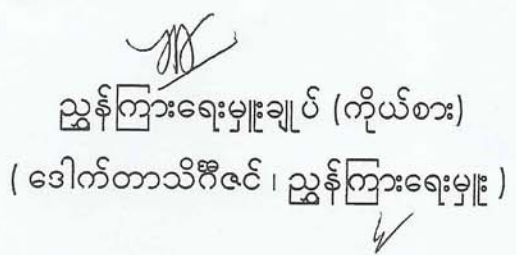 ညွှန်ကြားရေးမှူးချုပ် (ကိုယ်စား)
( ဒေါက်တာသိင်္ဂီဇင် ၊ ညွှန်ကြားရေးမှူး )